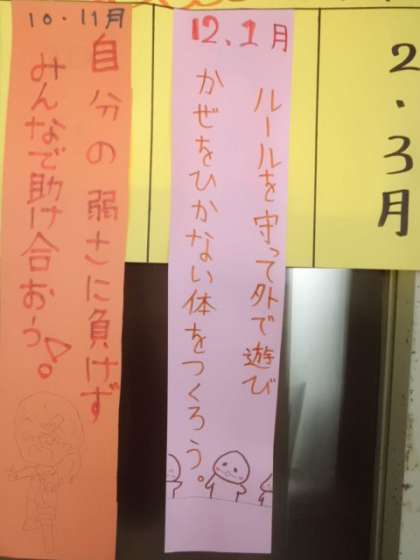 10.11月
自分の弱さに負けず
みんなで助け合おう!
12.1月
ルールを守って外で遊び
かぜをひかない体をつくろう。
2.3月